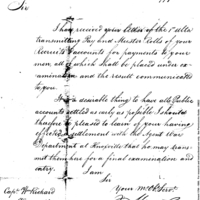 Sir
I have received your letter of the 7th ulto
transmitting Pay and Muster Rolls of your
Recruits & accounts for payments to your
men, all of which shall be placed under ex-
amination and the result communicated
to you.
It is a desirable thing to have all Public
accounts settled as early as possible I should
therefore be pleased to learn of your having
effected a settlement with the Agent War
Department at Knoxville that he may trans-
mit them here for a final examination and
entry.
I am
Sir
Your Mo Obt Servt
Capt. W Richard